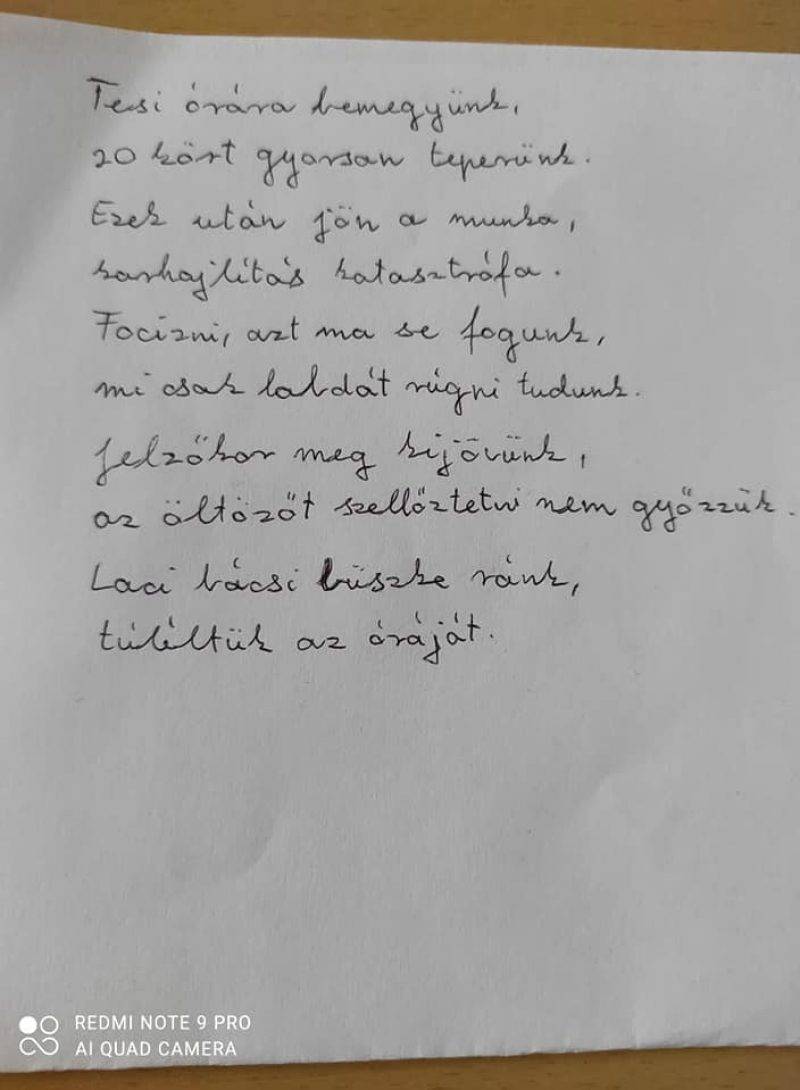 Tesi órára bemegyünk,
20 kört gyorsan teperünk.
Ezek után jön a munka,
karhajlítás katasztrófa.
Focizni, azt ma se fogunk,
mi csak labdát rúgni tudunk.
Jelzőkor meg kijövünk,
az öltözőt szellőztetni nem győzzük.
Laci bácsi büszke ránk,
túléltük az óráját.
REDMI NOTE 9 PRO
AI QUAD CAMERA